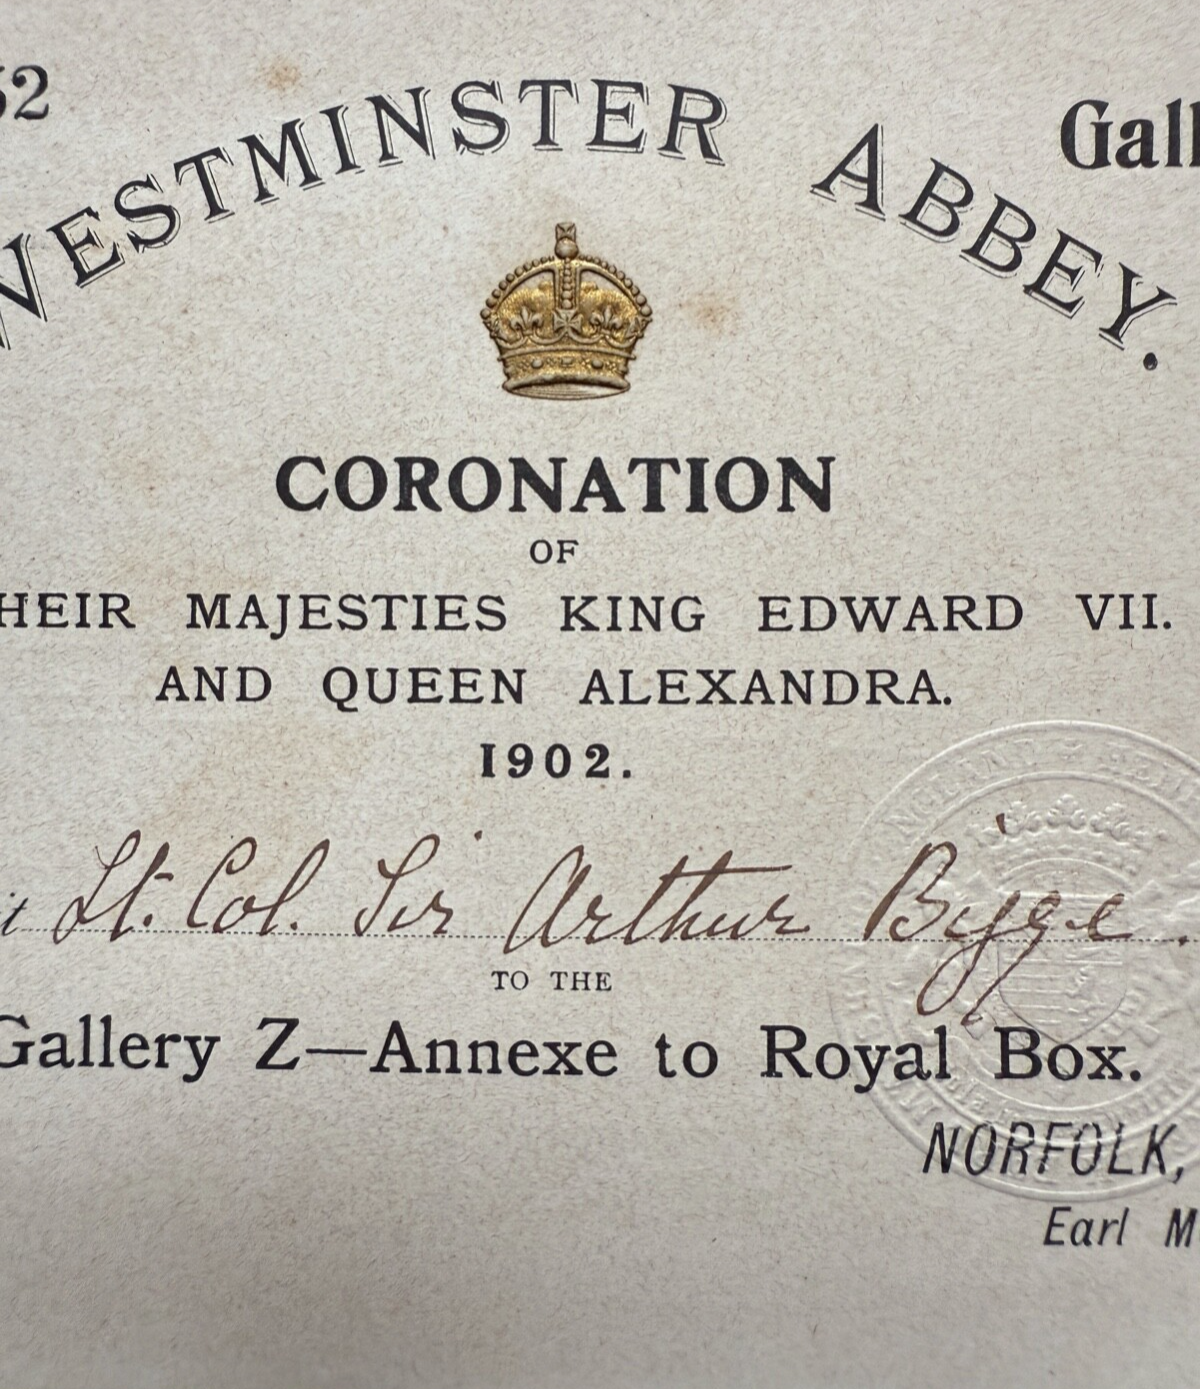 52
Gall
WESTMINSTER ABBEY.
CORONATION
OF
HEIR MAJESTIES KING EDWARD VII.
AND QUEEN ALEXANDRA.
1902.
it Lt. Col. Sir Arthur Bigge.
TO THE
Gallery Z—Annexe to Royal Box.
NORFOLK,
Earl M